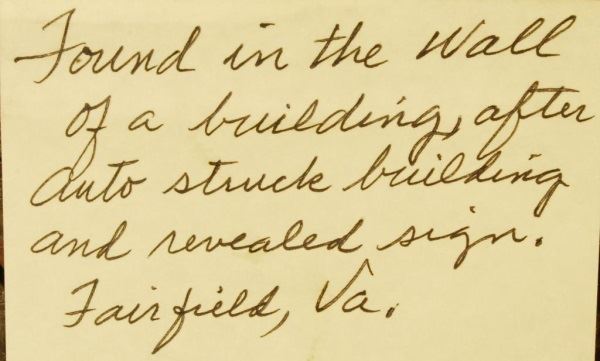 Found in the wall
of a building, after
auto struck building
and revealed sign.
Fairfield, Va.